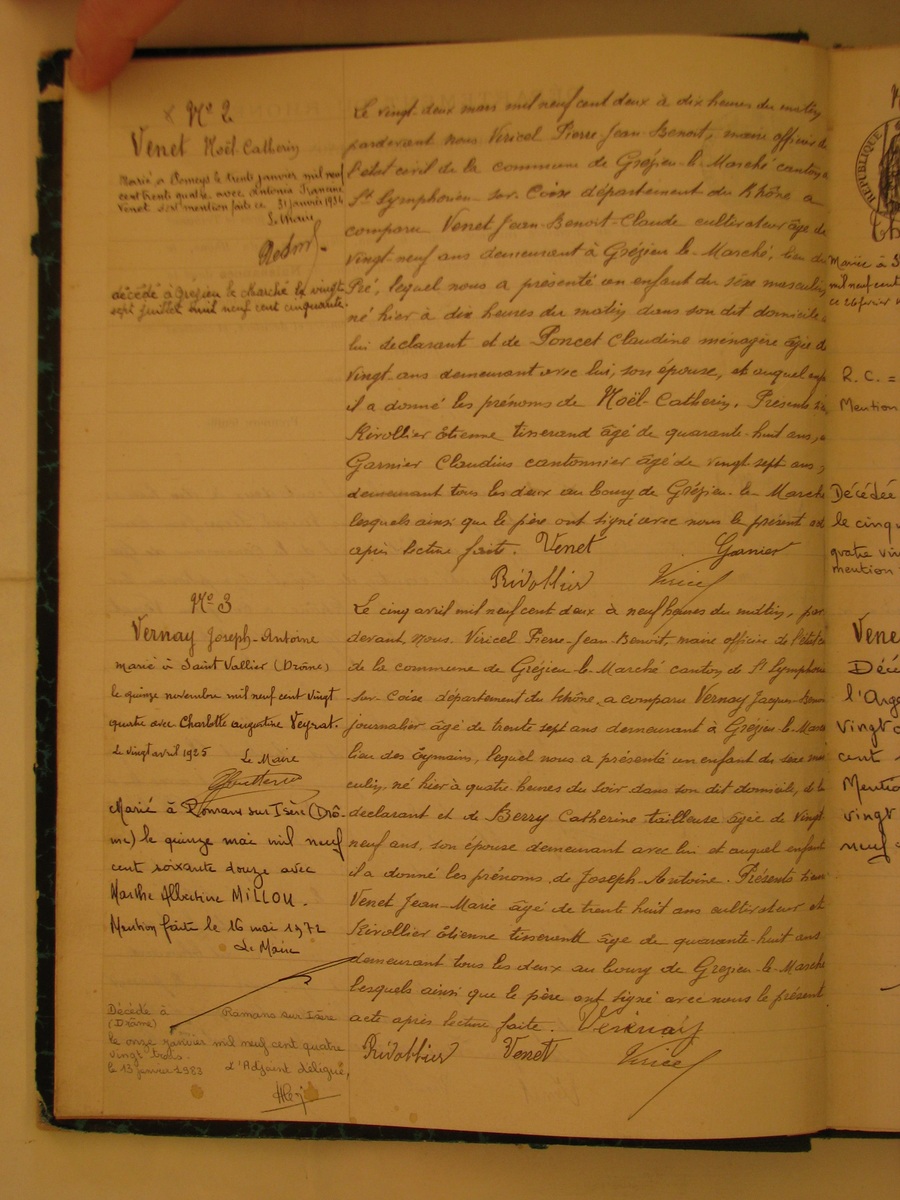 Nº 2
Venet Noël-Catherin
Marié à Pomeys le trente janvier mil neuf
cent trente quatre avec Antonia Francine
Venet dont mention faite ce 31 janvier 1934
Le Maire
décédé à Grézieu le Marché le vingt
sept juillet mil neuf cent cinquante.
Le vingt-deux mars mil neuf cent deux à dix heures du matin
pardevant nous Viricel Pierre-Jean-Benoit, maire officier de
l'état civil de la commune de Grézieu-le-Marché canton de
St Symphorien-sur-Coise département du Rhône a
comparu Venet Jean-Benoit-Claude cultivateur âgé de
vingt-neuf ans demeurant à Grézieu-le-Marché, lieu du
Pré, lequel nous a présenté un enfant du sexe masculin
né hier à dix heures du matin dans son dit domicile de
lui declarant et de Poncet Claudine ménagère âgée de
vingt-ans demeurant avec lui, son épouse, et auquel enfant
il a donné les prénoms de Noël-Catherin. Présents
Rivollier Etienne tisserand âgé de quarante-huit ans, et
Garnier Claudius cantonnier âgé de vingt sept ans,
demeurant tous les deux au bourg de Grézieu-le-Marché
lesquels ainsi que le père ont signé avec nous le présent acte
après lecture faite. Venet Garnier
Rivollier Viricel
Nº 3
Vernay Joseph-Antoine
marié à Saint Vallier (Drôme)
le quinze novembre mil neuf cent vingt
quatre avec Charlotte Augustine Veyrat.
Le vingt avril 1925 Le Maire
Marié à Romans sur Isère (Drô-
me) le quinze mai mil neuf
cent soixante douze avec
Marthe Albertine MILLOU.
Mention faite le 16 mai 1972
Le Maire
Décédé à Romans sur Isère
(Drôme)
le onze janvier mil neuf cent quatre
vingt trois.
le 13 janvier 1983 L'Adjoint délégué,
Le cinq avril mil neuf cent deux à neuf heures du matin, par
devant nous Viricel Pierre-Jean-Benoit, maire officier de l'état
de la commune de Grézieu-le-Marché canton de St Symphorien
sur-Coise département du Rhône, a comparu Vernay Jacques-Benoit
journalier âgé de trente sept ans demeurant à Grézieu-le-Marché
lieu des Eymains, lequel nous a présenté un enfant du sexe mas
culin, né hier à quatre heures du soir dans son dit domicile, de lui
declarant et de Berry Catherine tailleuse âgée de vingt
neuf ans, son épouse demeurant avec lui et auquel enfant
il a donné les prénoms de Joseph-Antoine. Présents
Venet Jean-Marie âgé de trente huit ans cultivateur et
Rivollier Etienne tisserand âgé de quarante-huit ans
demeurant tous les deux au bourg de Grezieu-le-Marché
lesquels ainsi que le père ont signé avec nous le présent
acte après lecture faite. Vernay
Rivollier Venet Viricel
REPUBLIQUE
Mariée à S
mil neuf cent
ce 26 février
R. C. =
Mention
Décédée
le cinq
quatre vin
mention
Vene
Décé
l'Arge
vingt
cent
Mentio
vingt
neuf